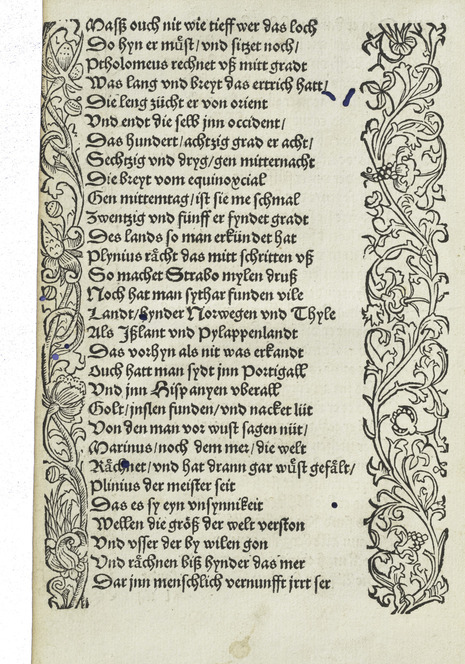 Masß ouch nit wie tieff wer das loch
Do hyn er můst/vnd sitzet noch/
Ptholomeus rechnet vß mitt gradt
Was lang vnd breyt das ertrich hatt/
Die leng zücht er von orient
Vnd endt die selb jnn occident/
Das hundert/achtzig grad er acht/
Sechtzig vnd dryg/gen mitternacht
Die breyt vom equinoxcial
Gen mittemtag/ist sie me schmal
Zwentzig vnd fünff er fyndet gradt
Des lands so man erkündet hat
Plynius rächt das mitt schritten vß
So machet Strabo mylen druß
Noch hat man sythar funden vile
Landt/hynder Norwegen vnd Thyle
Als Jßlant vnd Pylappenlandt
Das vorhyn als nit was erkandt
Ouch hatt man sydt jnn Portigall
Vnd jnn Hispanyen vberall
Golt/jnslen funden/vnd nacket lüt
Von den man vor wust sagen nüt/
Marinus/noch dem mer/die welt
Rächnet/vnd hat drann gar wůst gefält/
Plinius der meister seit
Das es sy eyn vnsynnikeit
Wellen die größ der welt verston
Vnd vsser der by wilen gon
Vnd rächnen biß hynder das mer
Dar jnn menschlich vernunfft jrrt ser